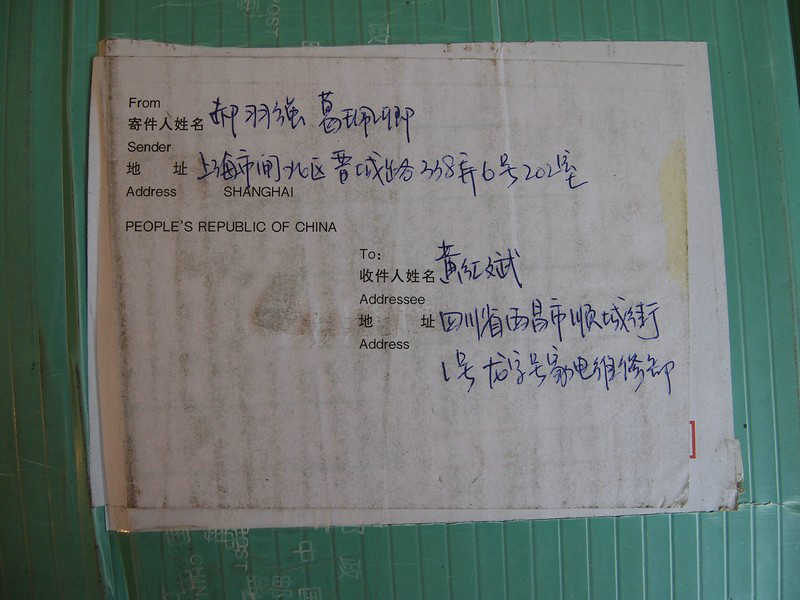 From
寄件人姓名 郝羽强 葛珮卿
Sender
地 址 上海市闸北区晋城路338弄6号202室
Address SHANGHAI
PEOPLE'S REPUBLIC OF CHINA
To:
收件人姓名 黄红斌
Addressee
地 址 四川省西昌市顺城街
Address
1号龙字号家电维修部